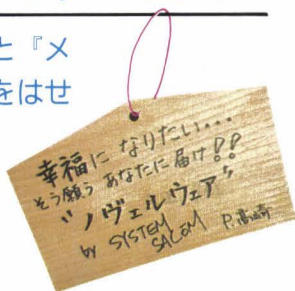 と『メ
をはせ
幸福になりたい...
そう願う あなたに届け!!
"ノヴェルウェア"
by SYSTEM
SACOM P.高崎